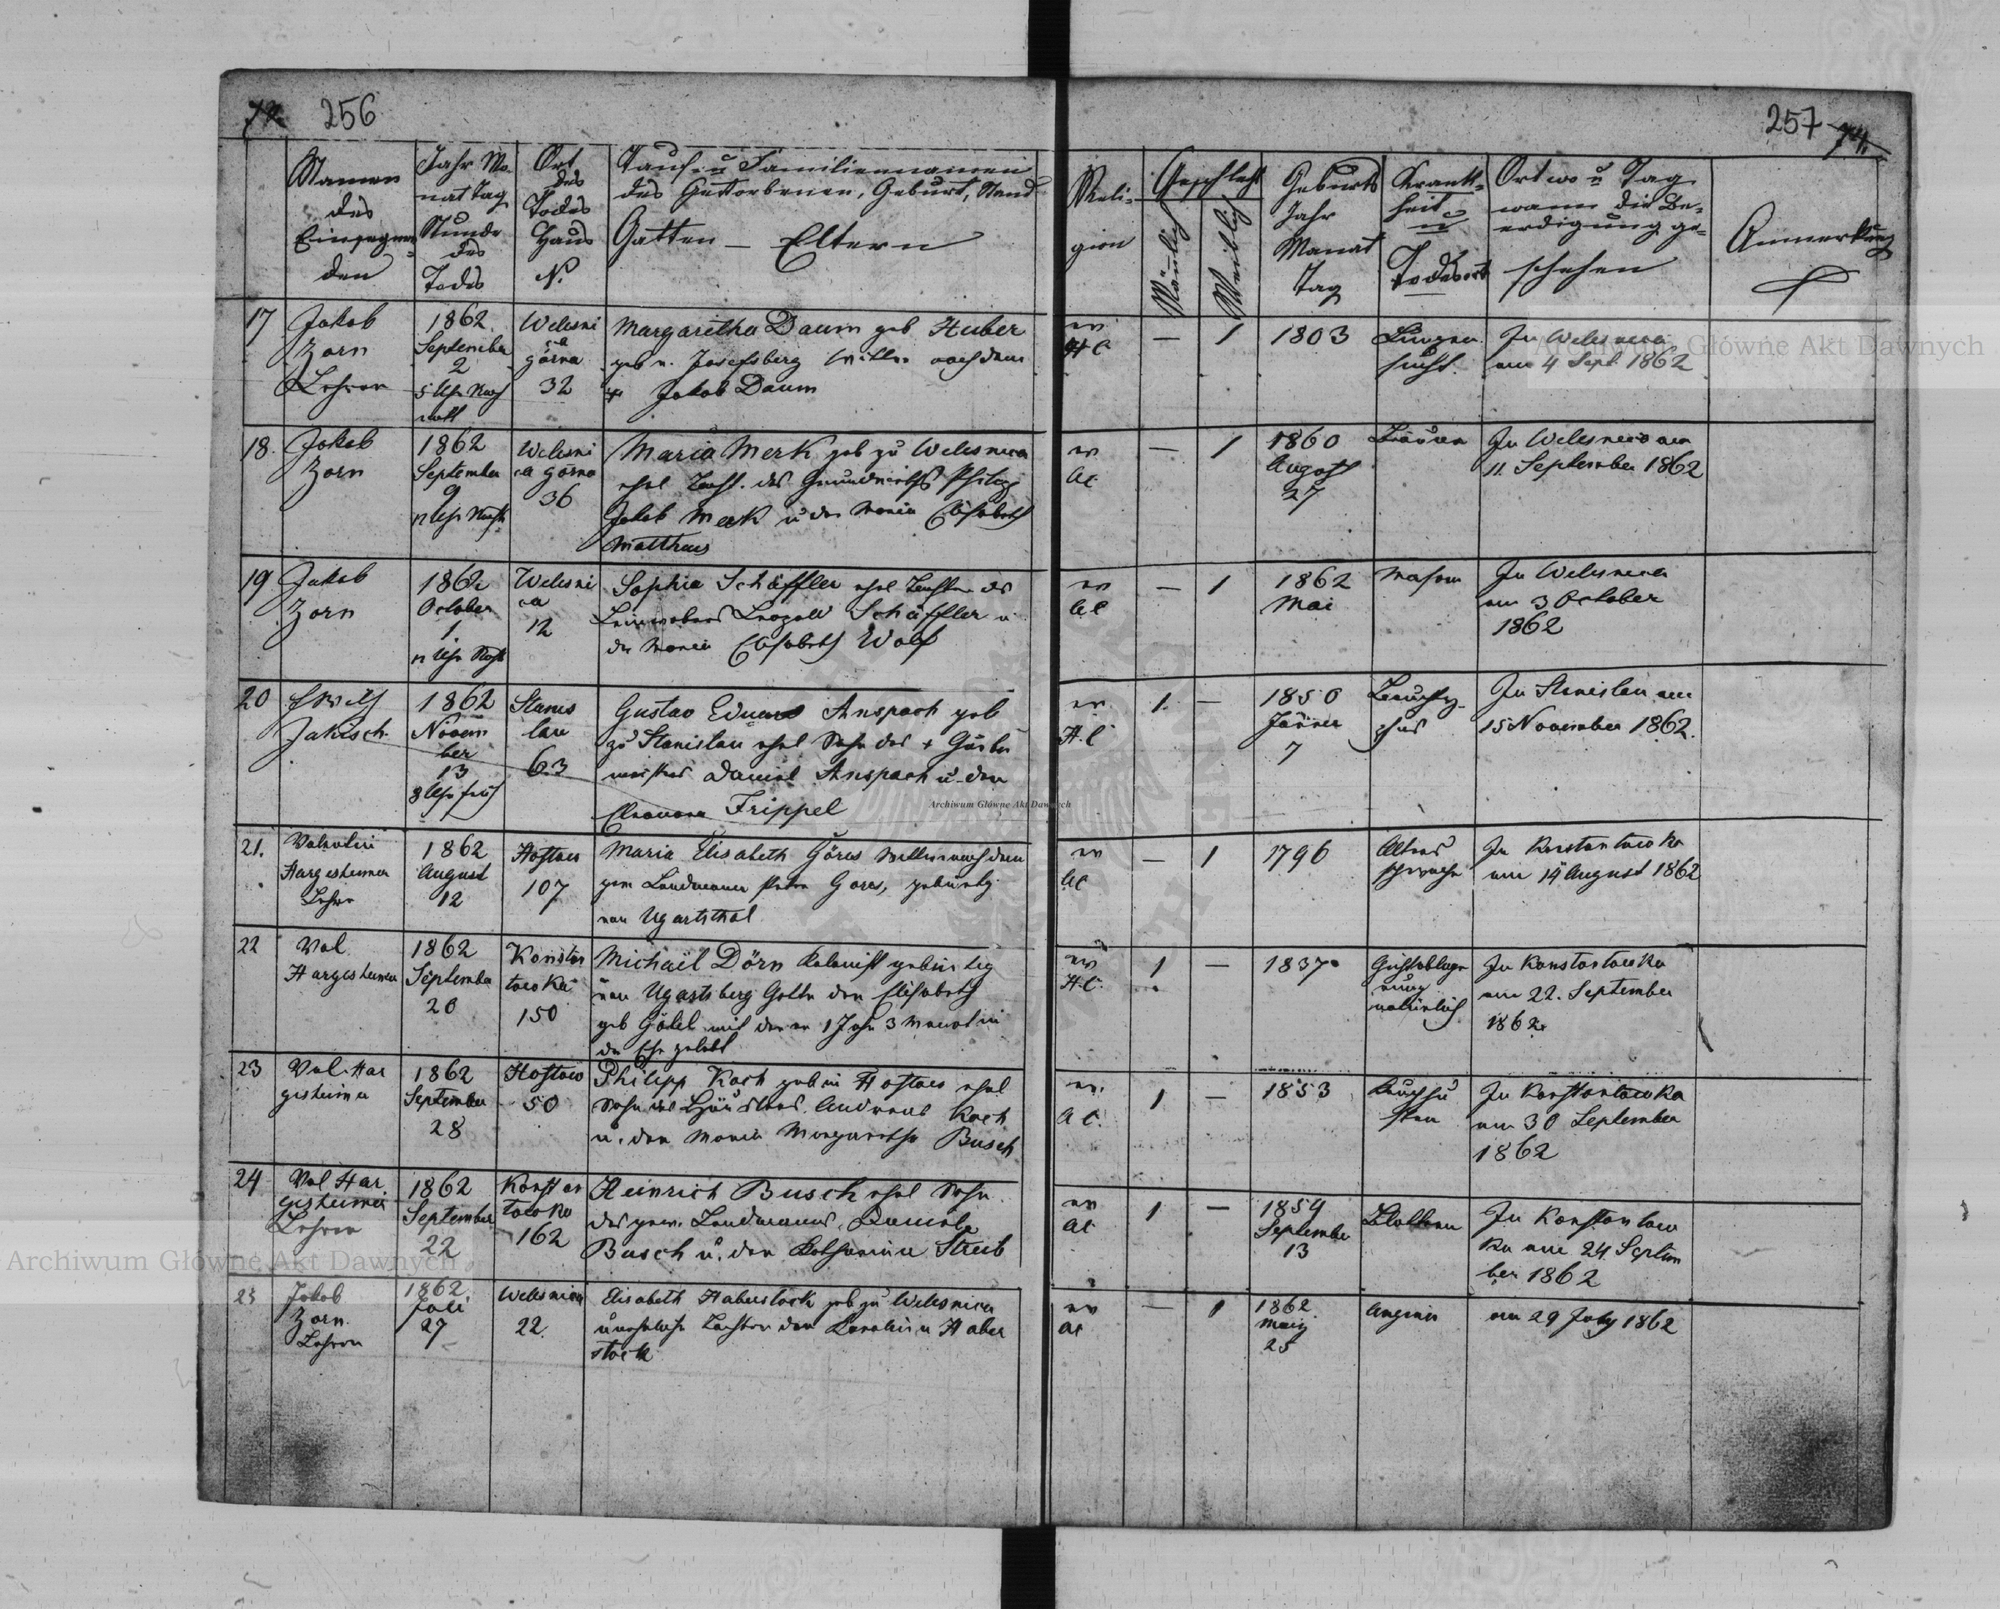 256
257
Namen des Einsegnenden
Jahr Monat Tag Stunde des Todes
Ort des Todes Haus N.
Tauf- u Familiennamen
des Gestorbenen, Geburt, Stand
Gatten — Eltern
Religion
Geschlecht
Mänlich
Weiblich
Geburts Jahr Monat Tag
Krankheit u Todesart
Ort wo u Tag
wann die Be-
erdigung ge-
schehen
Anmerkung
17
Jakob
Zorn
Lehrer
1862
September
2
5 Uhr
Welesni
ca
górna
32
Margaretha Daum geb Huber
geb v. Josefsberg Witwe nach dem
+ Jakob Daum
ev
H C
—
1
1803
Lungen
sucht
In Welesnica
am 4 Sept 1862
18.
Jakob
Zorn
1862
September
9
Welesni
ca górna
36
Maria Merk geb zu Welesnica
ehel Tocht. des Grundwirths Philipp
Jakob Merk u der Maria Elisabeth
Mattheus
ev
AC
—
1
1860
August
27
In Welesnica am
11 September 1862
19
Jakob
Zorn
1862
October
1
Welesni
ca
12
Sophia Schäffler ehel Tochter des
Leinwebers Leopold Schäffler u
der Maria Elisabeth Wolf
ev
AC
—
1
1862
Mai
Masern
In Welesnica
am 3 October
1862
20
Jakisch
1862
Novem
ber
13
8 Uhr früh
Stanis
lau
63
Gustav Eduard Anspach geb
zu Stanislau ehel Sohn des + Gärber
meisters Daniel Anspach u. der
Eleonora Frippel
ev
H.C
1.
—
1850
Jänner
7
In Stanislau am
15 November 1862.
21.
Valentin
Hargesheimer
Lehrer
1862
August
12
Hostow
107
Maria Elisabeth Göres Witwe nach dem
gew Landmann Peter Gores, gebürtig
von Ugartsthal
ev
AC
—
1
1796
Alters
schwäche
In Konstantowka
am 14 August 1862
22
Val
Hargesheimer
1862
September
20
Konstan
towka
150
Michaël Dörn Kolonist gebürtig
von Ugartsberg Gatte der Elisabeth
geb Göbel mit der er 1 Jahr 3 Monat in
der Ehe gelebt
ev
H.C.
1
—
1837
natürlich
In Konstantowka
am 22. September
1862
23
Val. Har
gesheimer
1862
September
28
Hostow
50
Philipp Koch geb in Hostow ehel
Sohn des Häuslers Andreas Koch
u. der Maria Margaretha Busch
ev.
A C.
1
—
1853
In Konstantowka
am 30 September
1862
24
Val Har
gesheimer
Lehrer
1862
September
22
Konstan
towka
162
Heinrich Busch ehel Sohn
des gew. Landmanns Daniel
Busch u. der Katharina Streib
ev
AC
1
—
1859
September
13
Blattern
In Konstantow
ka am 24 Septem
ber 1862
25
Jakob
Zorn.
Lehrer
1862
Juli
27
Welesnica
22.
Elisabeth Haberstock geb zu Welesnica
uneheliche Tochter der Karolina Haber
stock
ev
AC
—
1
1862
25
Angina
am 29 July 1862
Archiwum Główne Akt Dawnych
Archiwum Główne Akt Dawnych
Archiwum Główne Akt Dawnych